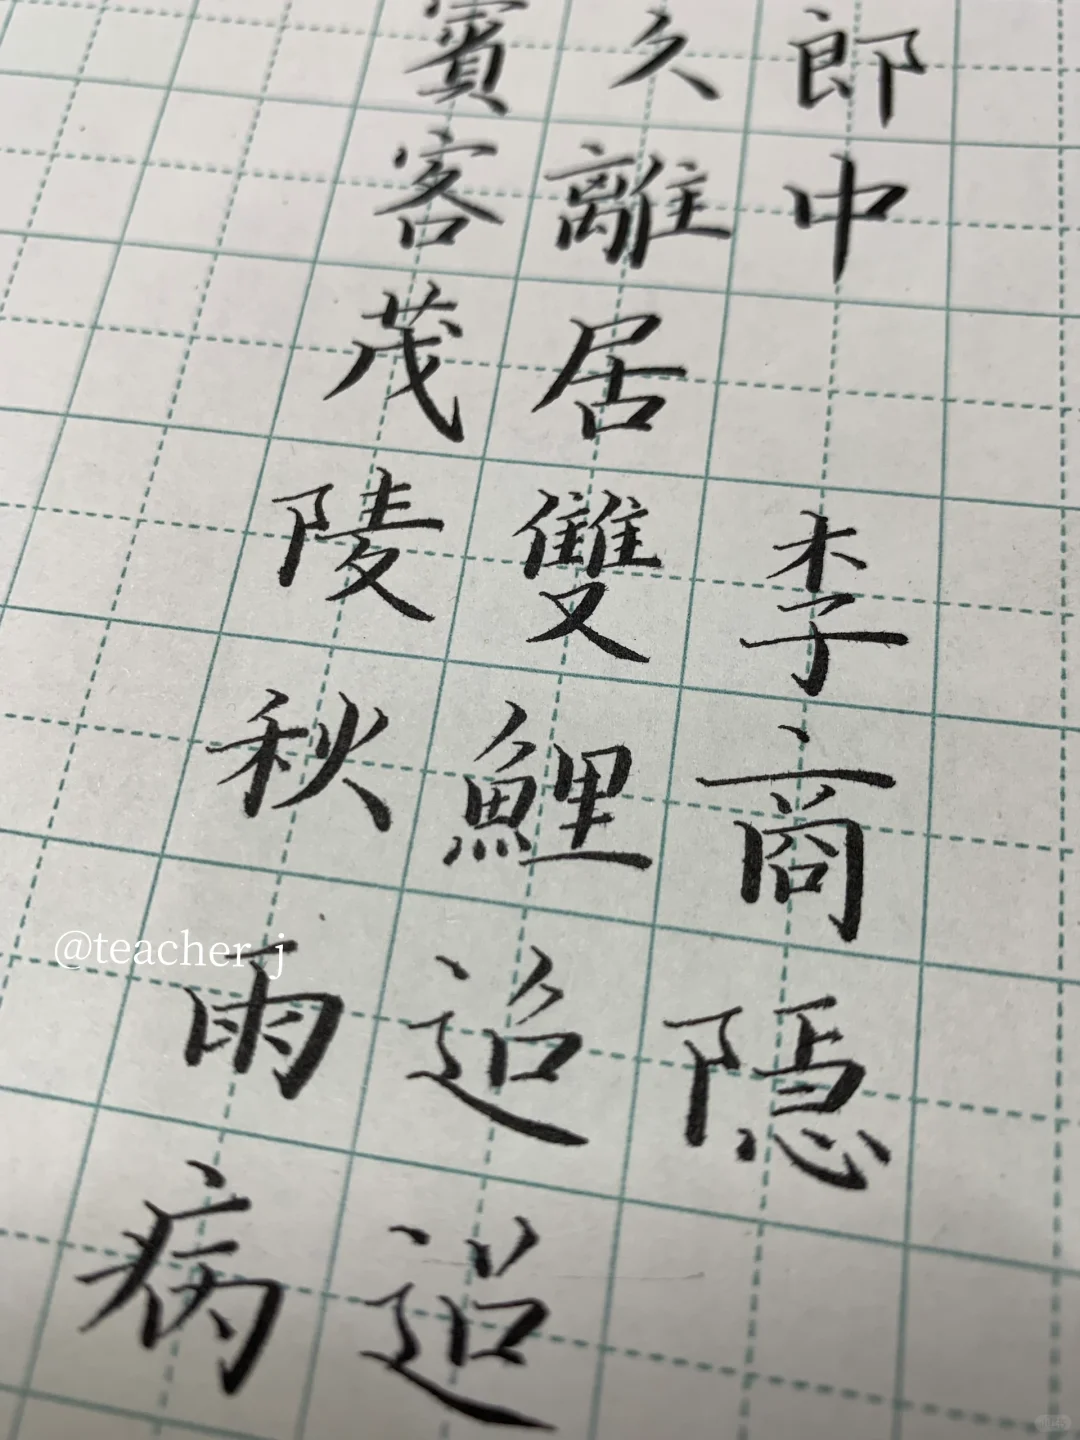 郎中 李商隠
久離居雙鯉迢迢
賓客茂陵秋雨病
@teacher_j